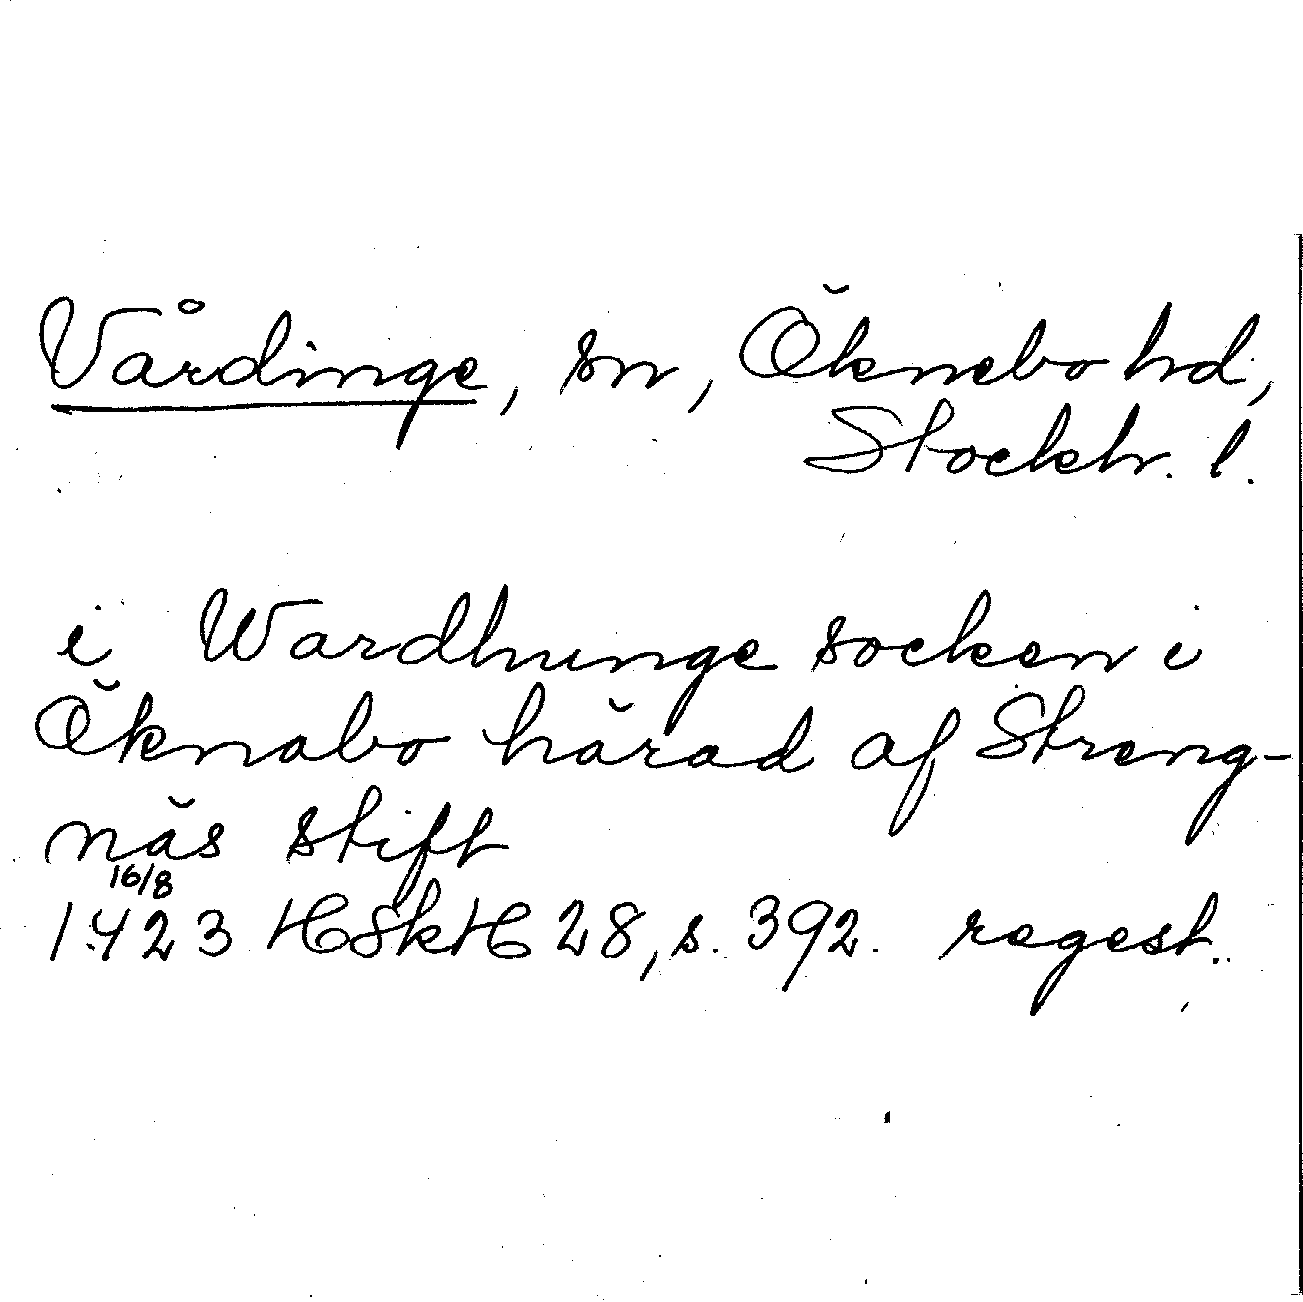 Vårdinge, sn, Öknebo hd,
Stockh. l.
i Wardhunge socken i
Öknabo härad af Streng-
näs stift
16/8
1423 HSkH 28, s. 392. regest.